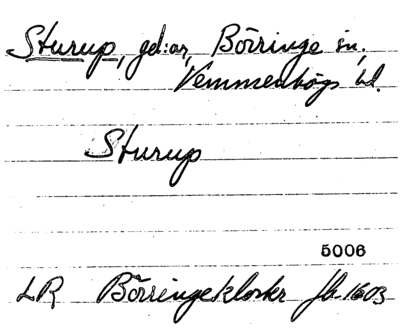 Sturup, gd:ar, Börringe sn,
Vemmenhögs hd.
Sturup
5006
LR Börringekloster Jb 1603